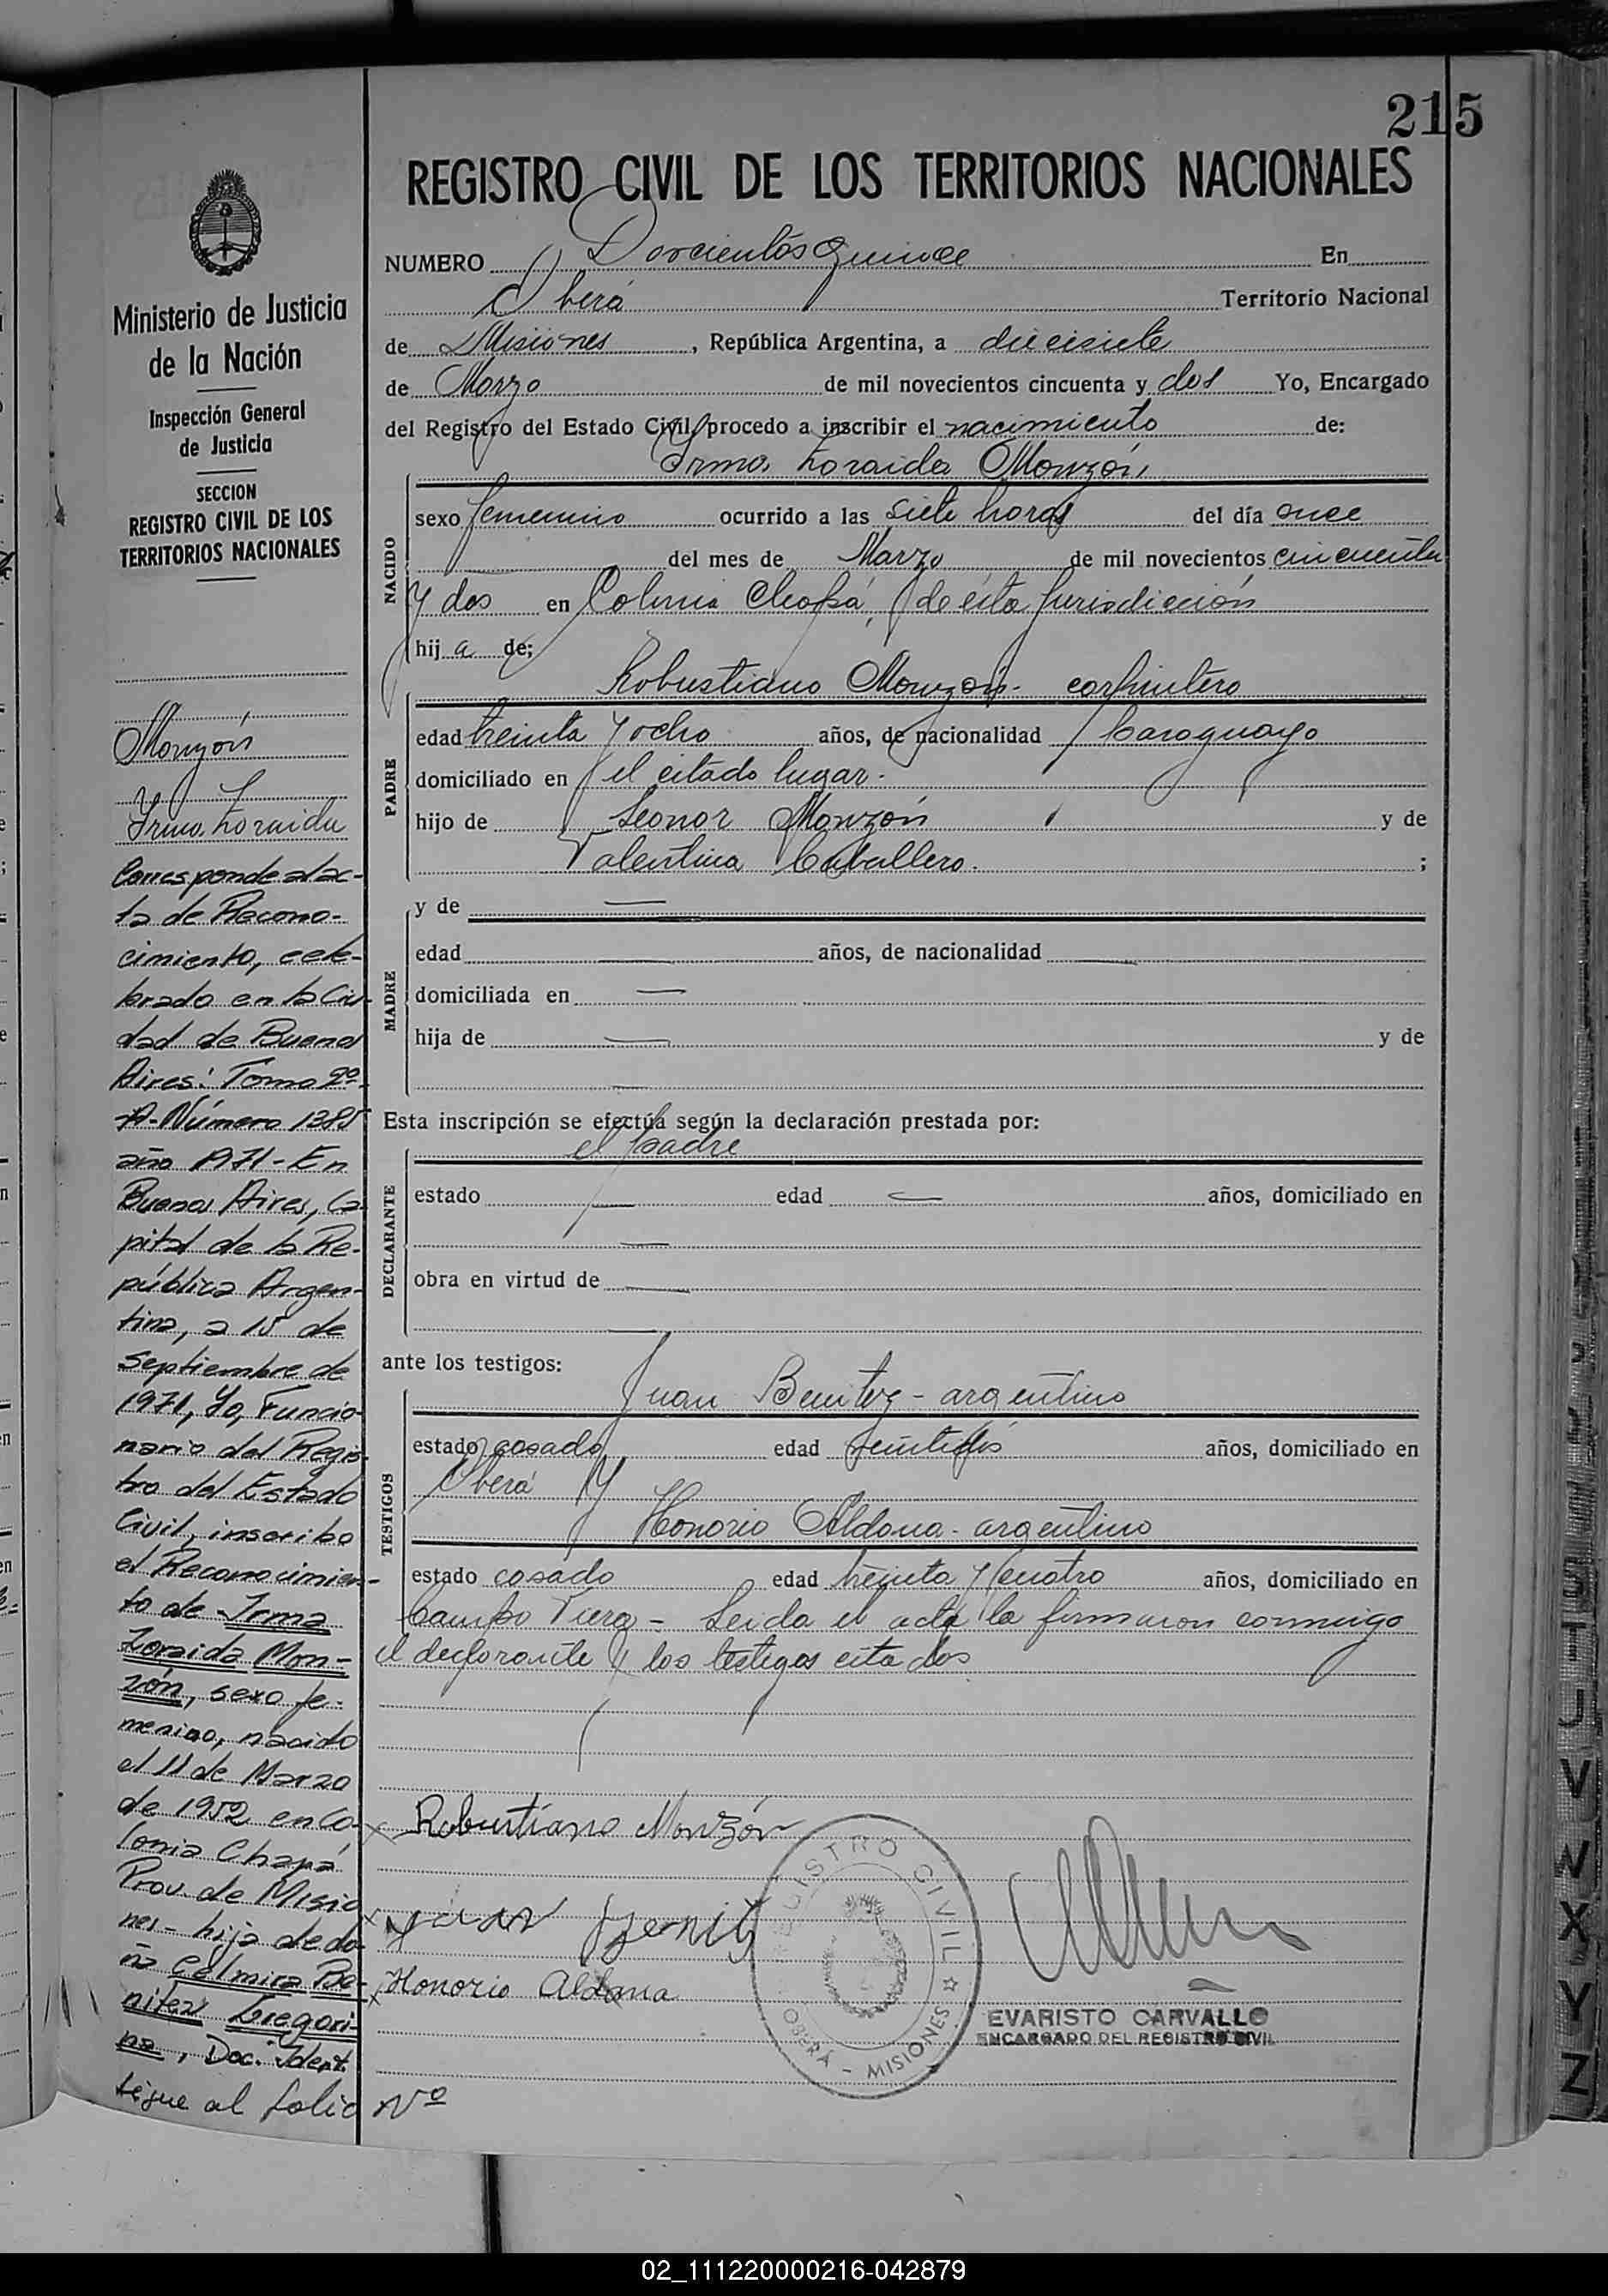 215
REGISTRO CIVIL DE LOS TERRITORIOS NACIONALES
NUMERO Doscientos quince En
Oberá Territorio Nacional
de Misiones, República Argentina, a diecisiete
de Marzo de mil novecientos cincuenta y dos Yo, Encargado
del Registro del Estado Civil, procedo a inscribir el nacimiento de:
Irma Zoraida Monzón
NACIDO
sexo femenino ocurrido a las siete horas del día once
del mes de Marzo de mil novecientos cincuenta
y dos en Colonia Chapá, de ésta jurisdicción
hija de;
Robustiano Monzón - carpintero
PADRE
edad treinta y ocho años, de nacionalidad paraguayo
domiciliado en el citado lugar.
hijo de Leonor Monzón y de
Valentina Caballero. ;
MADRE
y de —
edad — años, de nacionalidad —
domiciliada en —
hija de — y de
—
Esta inscripción se efectúa según la declaración prestada por:
el padre
DECLARANTE
estado — edad — años, domiciliado en
—
obra en virtud de —
—
ante los testigos:
Juan Benitez - argentino
TESTIGOS
estado casado edad años, domiciliado en
Oberá y
Honorio Aldana - argentino
estado casado edad treinta y cuatro años, domiciliado en
Campo Viera - Leida el acta la firmaron conmigo
el declarante y los testigos citados
Robustiano Monzón
Juan Benitez
Honorio Aldana
REGISTRO CIVIL
OBERÁ - MISIONES
EVARISTO CARVALLO
ENCARGADO DEL REGISTRO CIVIL
Ministerio de Justicia
de la Nación
Inspección General
de Justicia
SECCION
REGISTRO CIVIL DE LOS
TERRITORIOS NACIONALES
Monzón
Irma Zoraida
Corresponde al ac-
ta de Recono-
cimiento, cele-
brado en la Ciu-
dad de Buenos
Aires: Tomo 2º
A-Número 1385
año 1971 - En
Buenos Aires, Ca
pital de la Re-
pública Argen-
tina, a 15 de
Septiembre de
1971, Yo, Funcio-
nario del Regis-
tro del Estado
Civil, inscribo
el Reconocimien-
to de Irma
Zoraida Mon-
zón, sexo fe-
menino, nacido
el 11 de Marzo
de 1952 en Co-
lonia Chapá
Prov. de Misio
nes - hija de do-
ña Celmira Be-
nitez Gregori-
na, Doc. Ident.
sigue al folio Nº
S
T
U
V
W
X
Y
Z
02_111220000216-042879